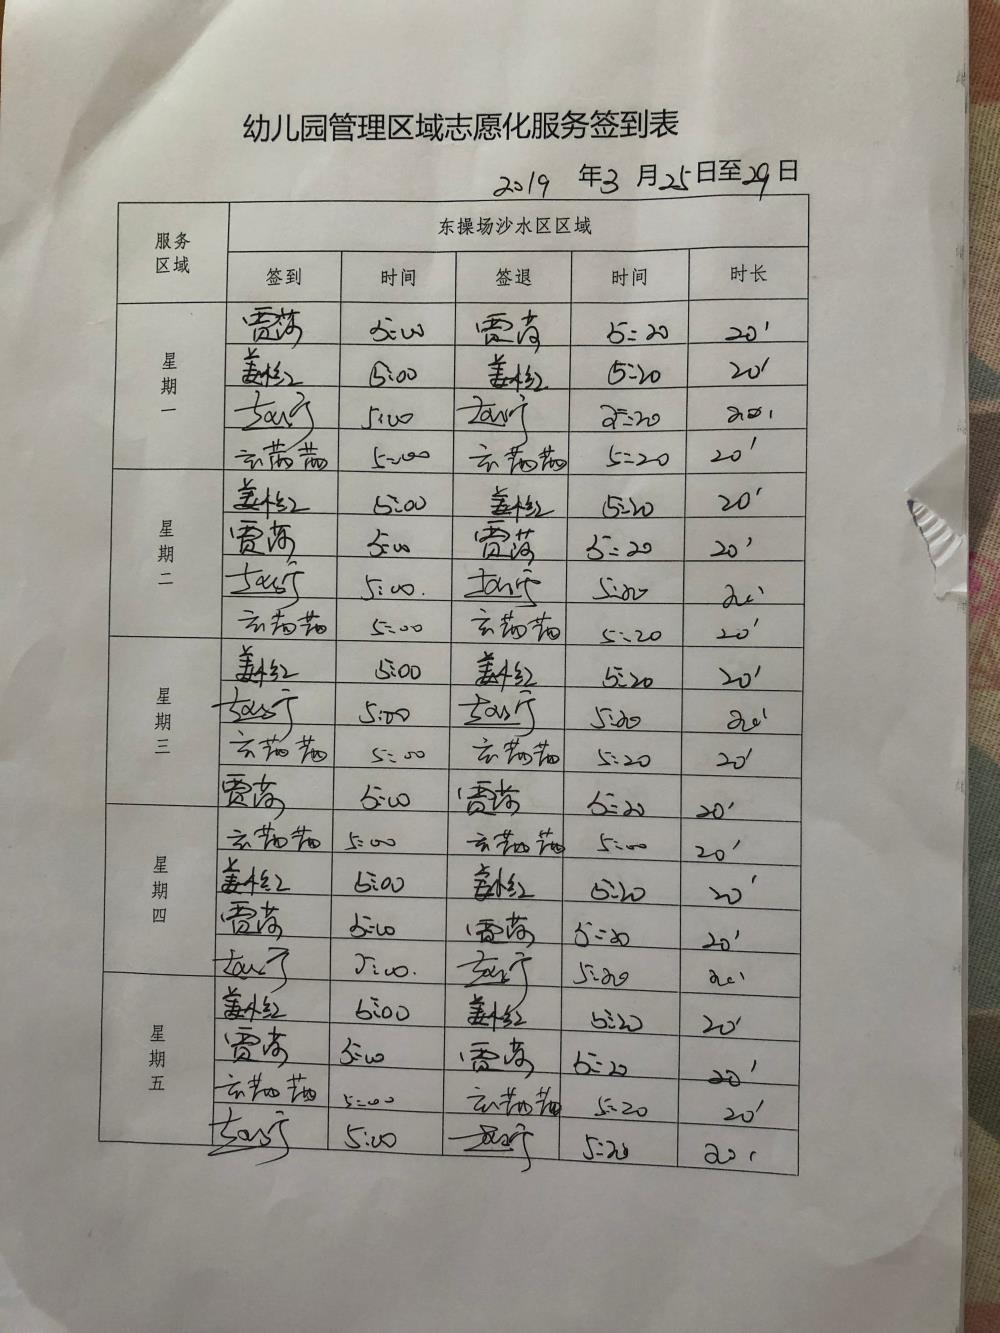 幼儿园管理区域志愿化服务签到表
2019 年3 月25日至29日
服务区域 东操场沙水区区域
签到 时间 签退 时间 时长
星期一
贾荷 5:00 贾荷 5:20 20'
姜红 5:00 姜红 5:20 20'
5:00 5:20 20'
云茜茜 5:00 云茜茜 5:20 20'
星期二
姜红 5:00 姜红 5:20 20'
贾荷 5:00 贾荷 5:20 20'
5:00. 5:20 20'
云茜茜 5:00 云茜茜 5:20 20'
星期三
姜红 5:00 姜红 5:20 20'
5:00 5:20 20'
云茜茜 5:00 云茜茜 5:20 20'
贾荷 5:00 贾荷 5:20 20'
星期四
云茜茜 5:00 云茜茜 5:00 20'
姜红 5:00 姜红 5:20 20'
贾荷 5:00 贾荷 5:20 20'
5:00. 5:20 20'
星期五
姜红 5:00 姜红 5:20 20'
贾荷 5:00 贾荷 5:20 20'
云茜茜 5:00 云茜茜 5:20 20'
5:00 5:20 20'